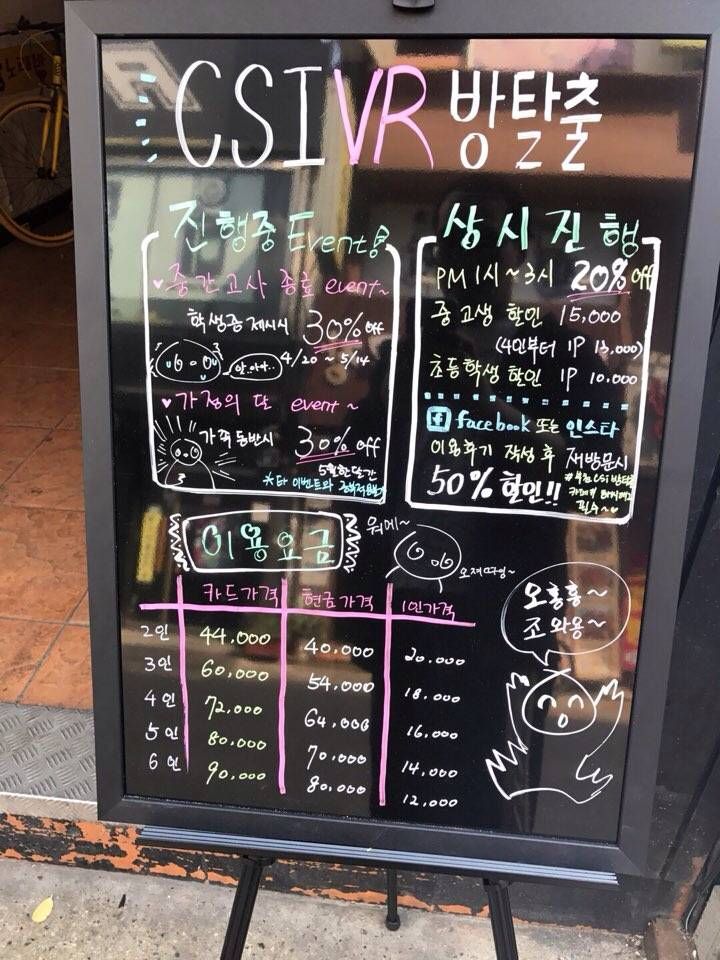 CSI VR 방탈출
진행중 Event
♥ 중간고사 종료 event~
학생증 제시시 30% off
4/20 ~ 5/14
♥ 가정의 달 event ~
가족 동반시 30% off
5월 한달간
상시진행
PM 1시 ~ 3시 20% off
중고생 할인 15,000
(4인부터 1P 13,000)
초등학생 할인 1P 10.000
facebook 또는 인스타
이용후기 작성 후 재방문시
50% 할인!!
필수~
이용요금
워메~
카드가격 현금가격 1인가격
2인 44.000 40.000 20.000
3인 60.000 54.000 18.000
4인 72.000 64.000 16.000
5인 80.000 70.000 14.000
6인 90.000 80.000 12.000
오홍홍~
조와용~